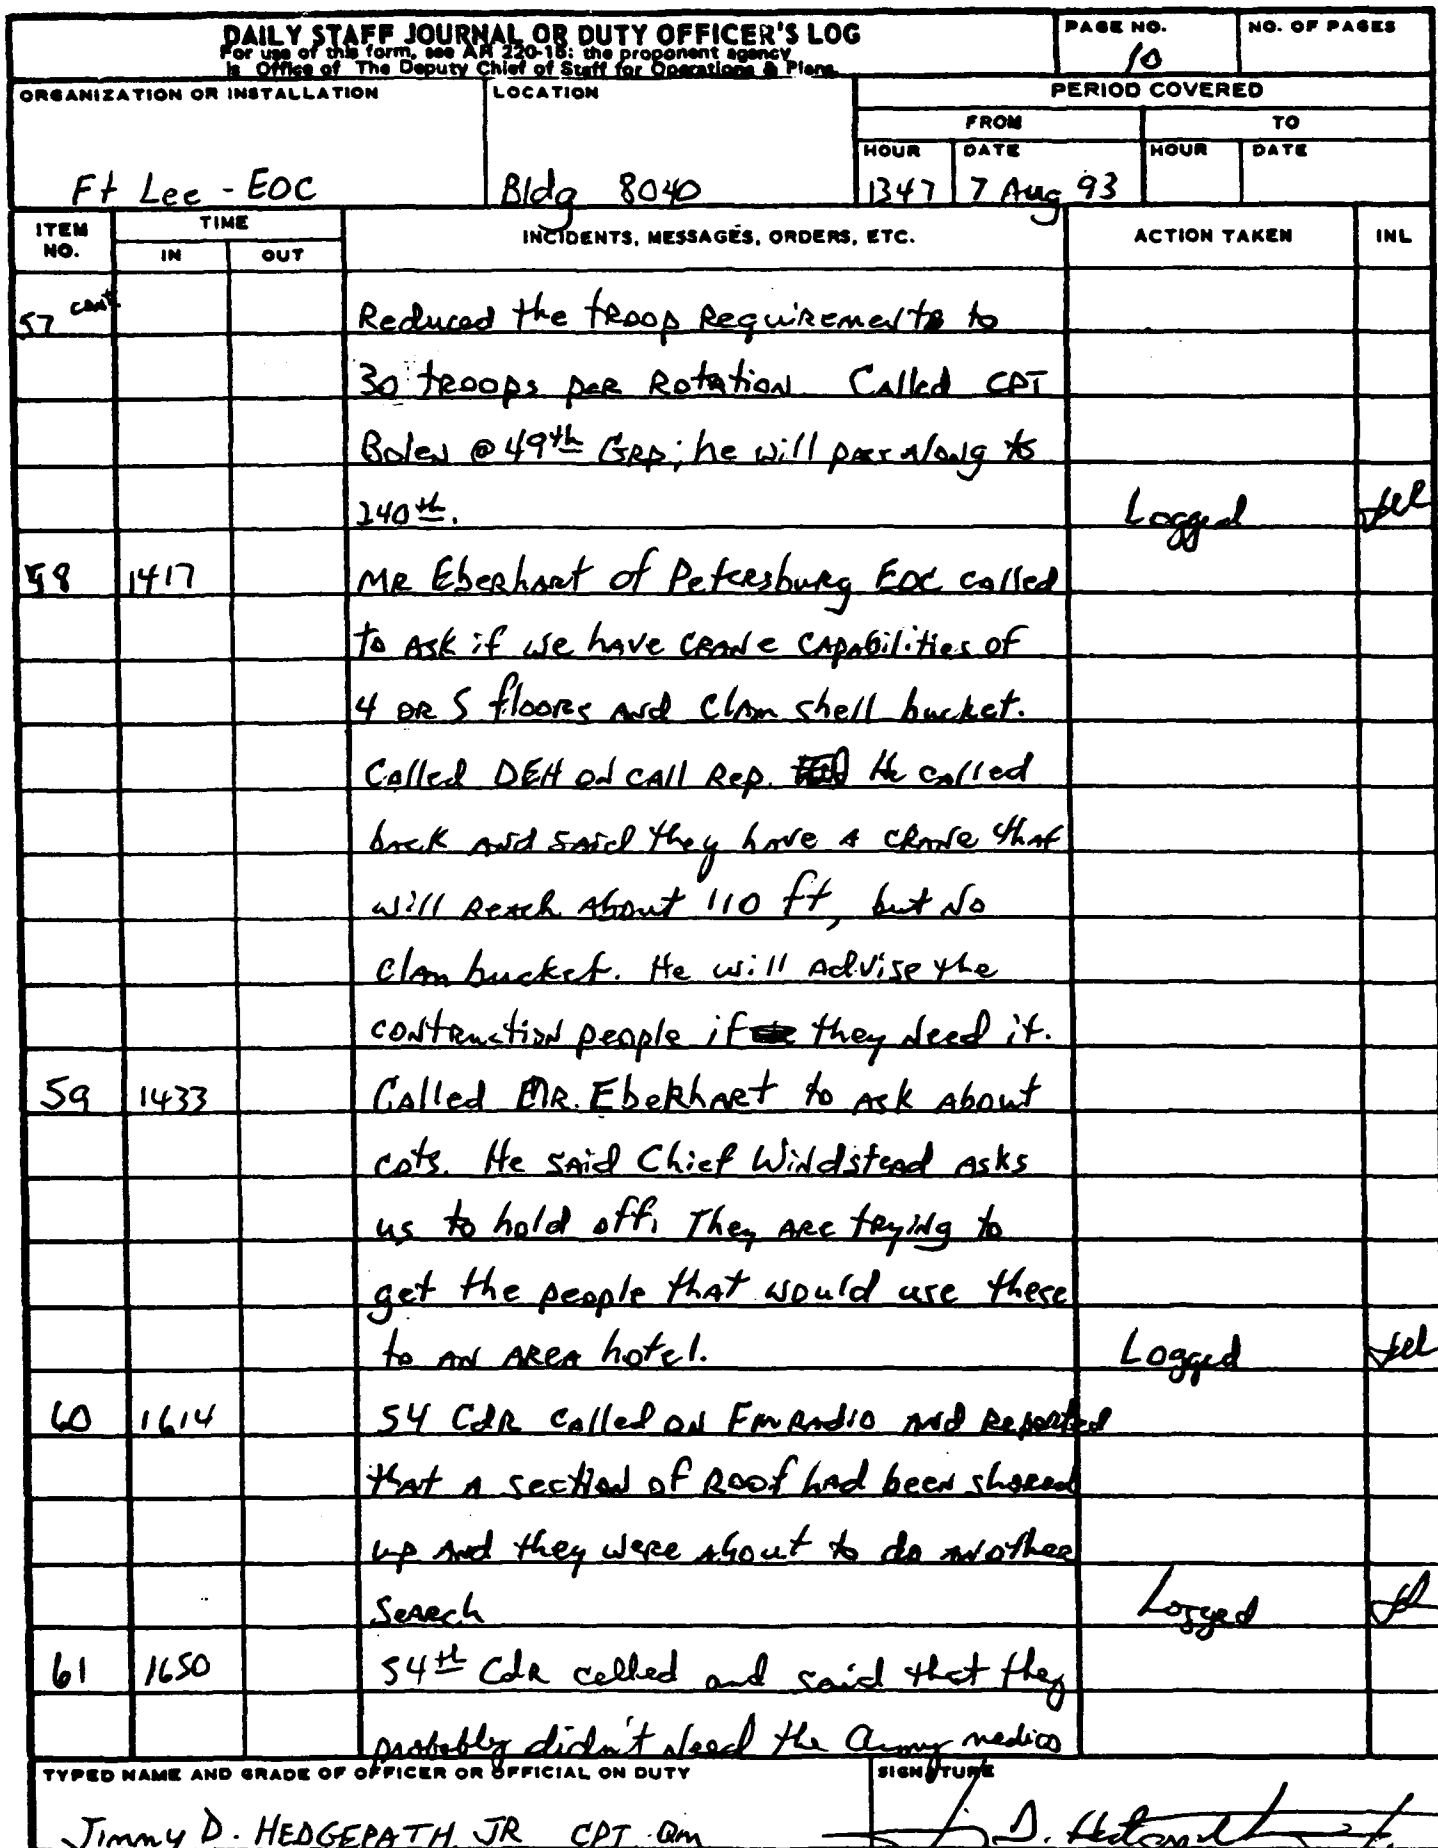 DAILY STAFF JOURNAL OR DUTY OFFICER'S LOG
For use of this form, see AR 220-15; the proponent agency
is Office of The Deputy Chief of Staff for Operations & Plans.
PAGE NO.
10
NO. OF PAGES
ORGANIZATION OR INSTALLATION
Ft Lee - EOC
LOCATION
Bldg 8040
PERIOD COVERED
FROM
TO
HOUR
DATE
HOUR
DATE
1347
7 Aug 93
ITEM NO.
TIME
IN
OUT
INCIDENTS, MESSAGES, ORDERS, ETC.
ACTION TAKEN
INL
57 cont.
Reduced the troop requirements to
30 troops per rotation. Called CPT
Bolen @ 49th GRP; he will pass along to
240th. Logged
58 1417 MR Eberhart of Petersburg EOC called
to ask if we have crane capabilities of
4 or 5 floors and clam shell bucket.
Called DEH on call Rep. He called
back and said they have a crane that
will reach about 110 ft, but no
clam bucket. He will advise the
contruction people if they need it.
59 1433 Called MR. Eberhart to ask about
cots. He said Chief Windstead asks
us to hold off. They are trying to
get the people that would use these
to an area hotel. Logged
60 1614 54 Cdr called on FM Radio and reported
that a section of roof had been shored
up and they were about to do another
search Logged
61 1650 54th Cdr called and said that they
probably didn't need the Army medics
TYPED NAME AND GRADE OF OFFICER OR OFFICIAL ON DUTY
Jimmy D. HEDGEPATH JR CPT QM
SIGNATURE